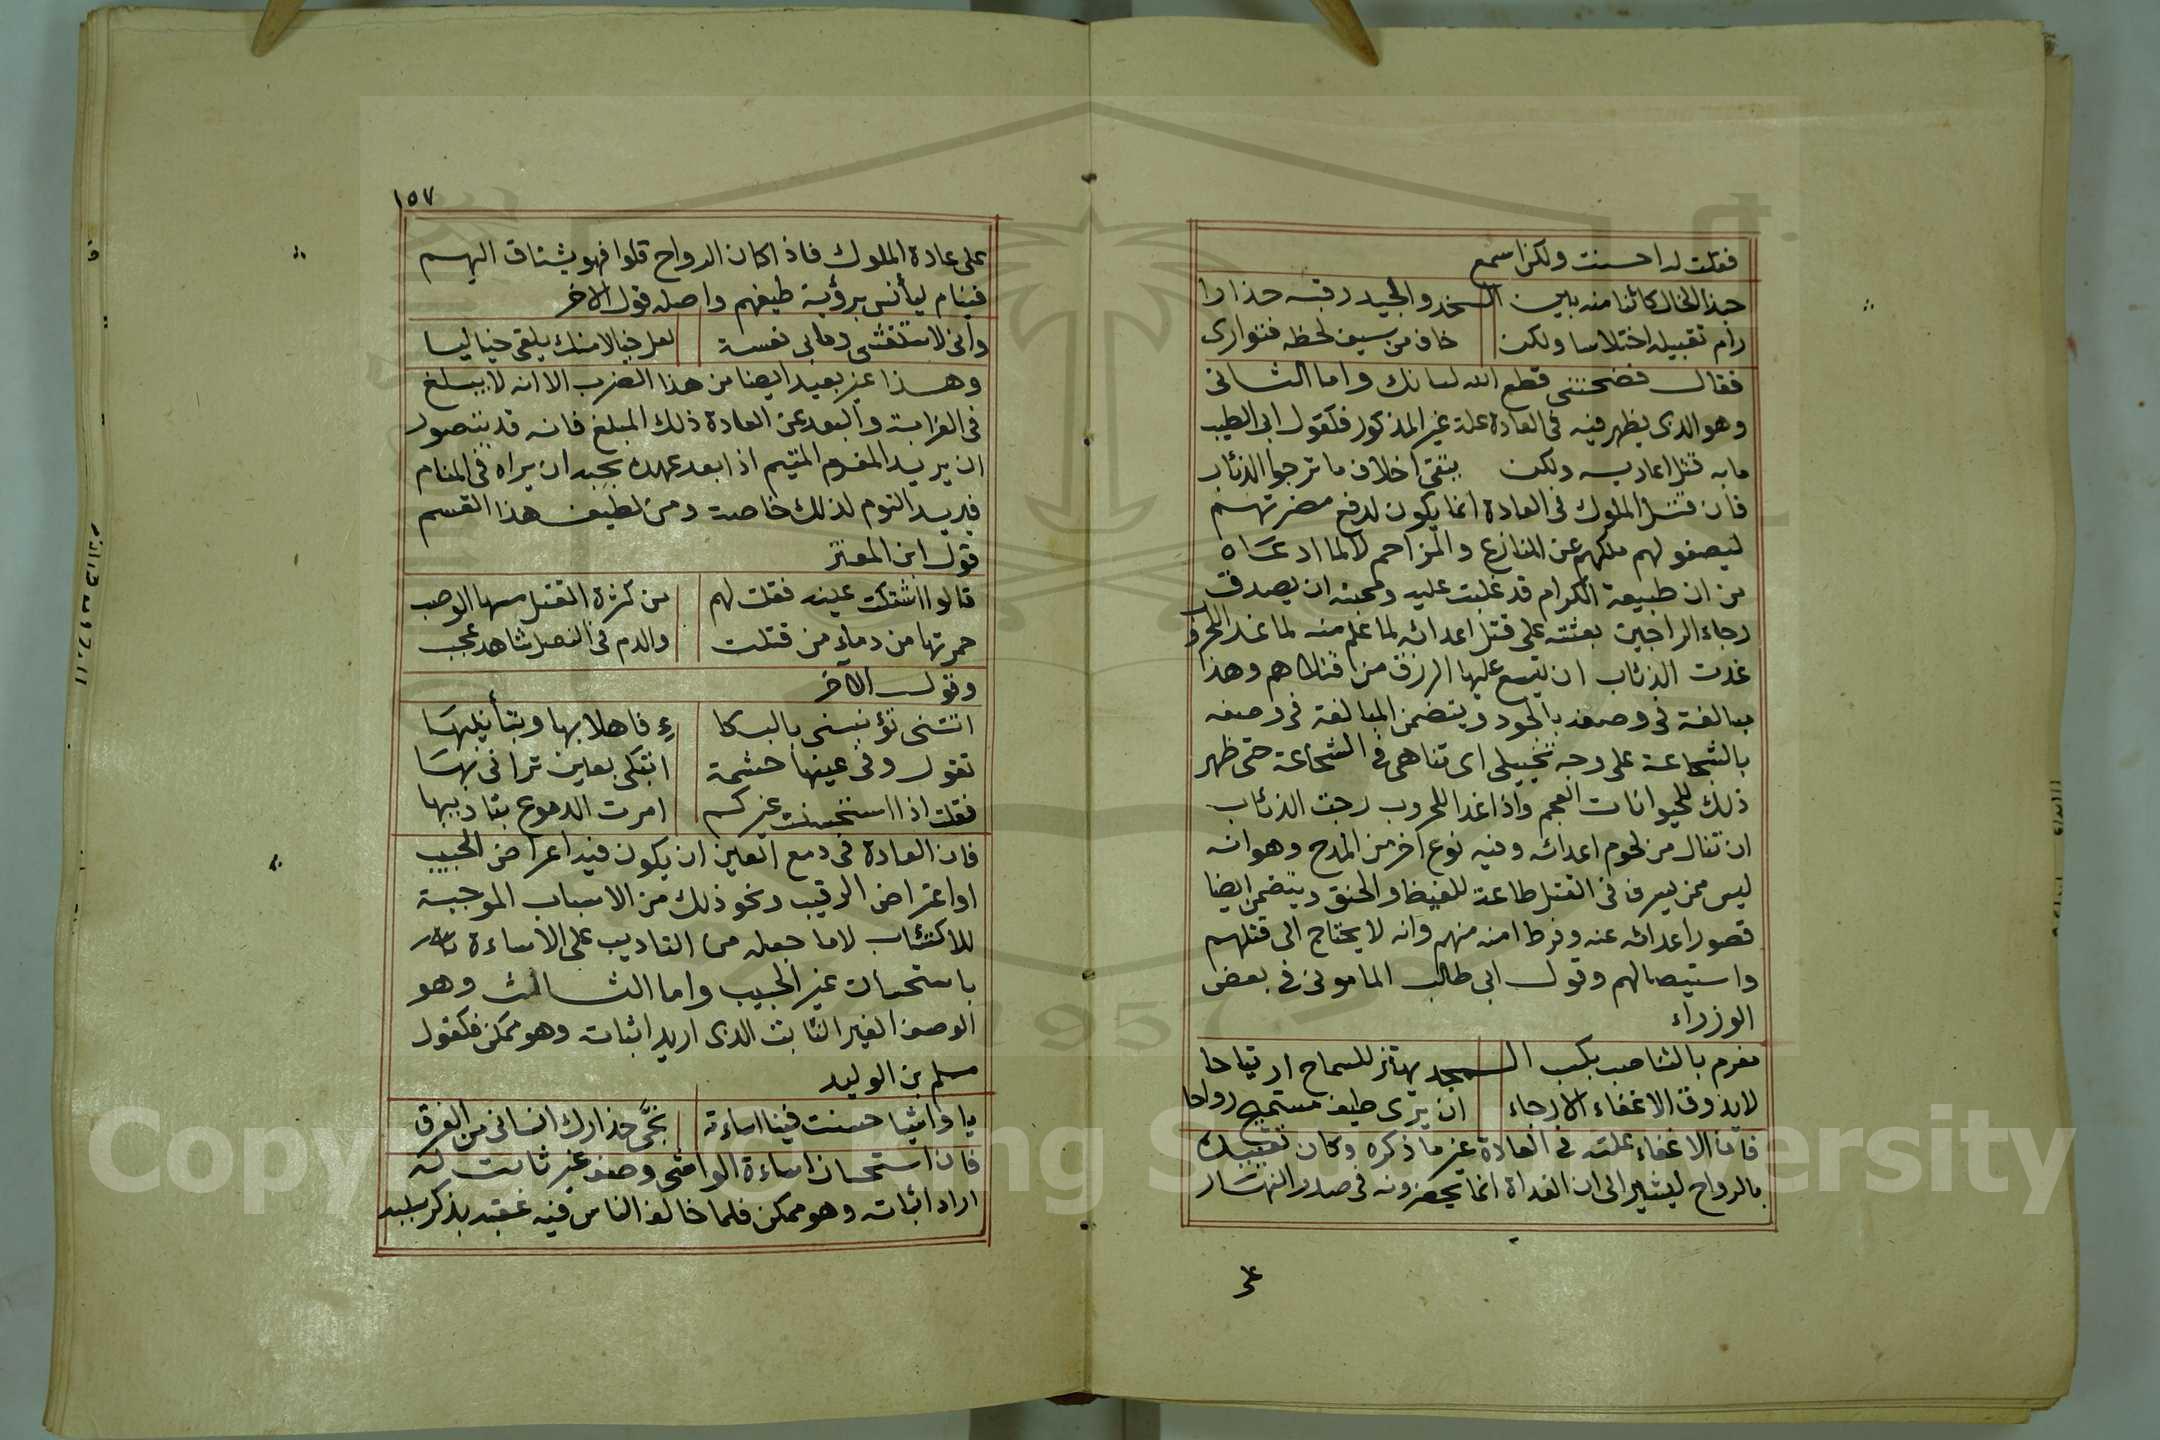 فقلت له احسنت ولكن اسمع
حبذا الخال كائنا منه بين الـ ـخد والجيد رقبه حذارا
رام تقبيله اختلاسا ولكن خاف من سيف لحظه فتوارى
فقال فضحتنى قطع الله لسانك واما الثانى
وهو الذى يظهر فيه فى العادة علة غير المذكور فكقول ابى الطيب
ما به قتل اعاديه ولكن يتقى اخلاف ما ترجوا الذئاب
فان قتل الملوك فى العادة انما يكون لدفع مضرتهم
ليصفو لهم ملكهم عن المنازع والمزاحم لا لما ادعاه
من ان طبيعة الكرام قد غلبت عليه ومحبته ان يصدق
رجاء الراجين بعثته على قتل اعدائه لما علم منه لما غدا للحرب
غدت الذئاب ان يتسع عليها الرزق من قتلاهم وهذا
مبالغة فى وصفه بالجود ويتضمن المبالغة فى وصفه
بالشجاعة على وجه تخييلى اى تناهى فى الشجاعة حتى ظهر
ذلك للحيوانات العجم واذا غدا للحروب رجت الذئاب
ان تنال من لحوم اعدائه وفيه نوع آخر من المدح وهو انه
ليس ممن يسرف فى القتل طاعة للغيظ والحنق ويتضمن ايضا
قصور اعدائه عنه وفرط امنه منهم وانه لا يحتاج الى قتلهم
واستيصالهم وقول ابى طالب المامونى فى بعض
الوزراء
مغرم بالثنا صب بكسب الـ ـمجد يهتز للسماح ارتياحا
لا يذوق الاغفاء الا رجاء ان يرى طيف مستميح رواحا
فان الاغفاء علته فى العادة غير ما ذكره وكان تقييده
بالرواح ليشير الى ان الغداة انما يحضرونه فى صدر النهار
على
١٥٧
على عادة الملوك فاذا كان الرواح قلوا فهو يشتاق اليهم
فينام ليأنس برؤية طيفهم واصله قول الاخر
وانى لاستغشى وما بى نعسة لعل خيالا منك يلقى خياليا
وهذا غير بعيد ايضا من هذا الضرب الا انه لا يبلغ
فى الغرابة والبعد عن العادة ذلك المبلغ فانه قد يتصور
ان يريد المغرم المتيم اذا بعد عهده بحبه ان يراه فى المنام
فيريد النوم لذلك خاصة ومن لطيف هذا القسم
قول ابن المعتز
قالوا اشتكت عينه فقلت لهم من كثرة القتل مسها الوصب
حمرتها من دماء من قتلت والدم فى النصل شاهد عجب
وقول الآخر
اتتنى تؤنبنى بالبكا ءِ فاهلا بها وبتأنيبها
تقول وفى عينها حشمة اتبكى بعين ترانى بها
فقلت اذا استحسنت غيركم امرت الدموع بتاديبها
فان العادة فى دمع العين ان يكون فيه اعراض الحبيب
او اعتراض الرقيب ونحو ذلك من الاسباب الموجبة
للاكتئاب لا ما جعله من التاديب على الاساءة
باستحسان غير الحبيب واما الثالث وهو
الوصف الغير الثابت الذى اريد اثباته وهو ممكن فكقول
مسلم بن الوليد
يا واشيا حسنت فينا اساءته نجّى حذارك انسانى من الغرق
فان استحسان اساءة الواشى وصف غير ثابت له
اراد اثباته وهو ممكن فلما خالف الناس فيه عقبه بذكر سببه
Copyright © King Saud University
1957